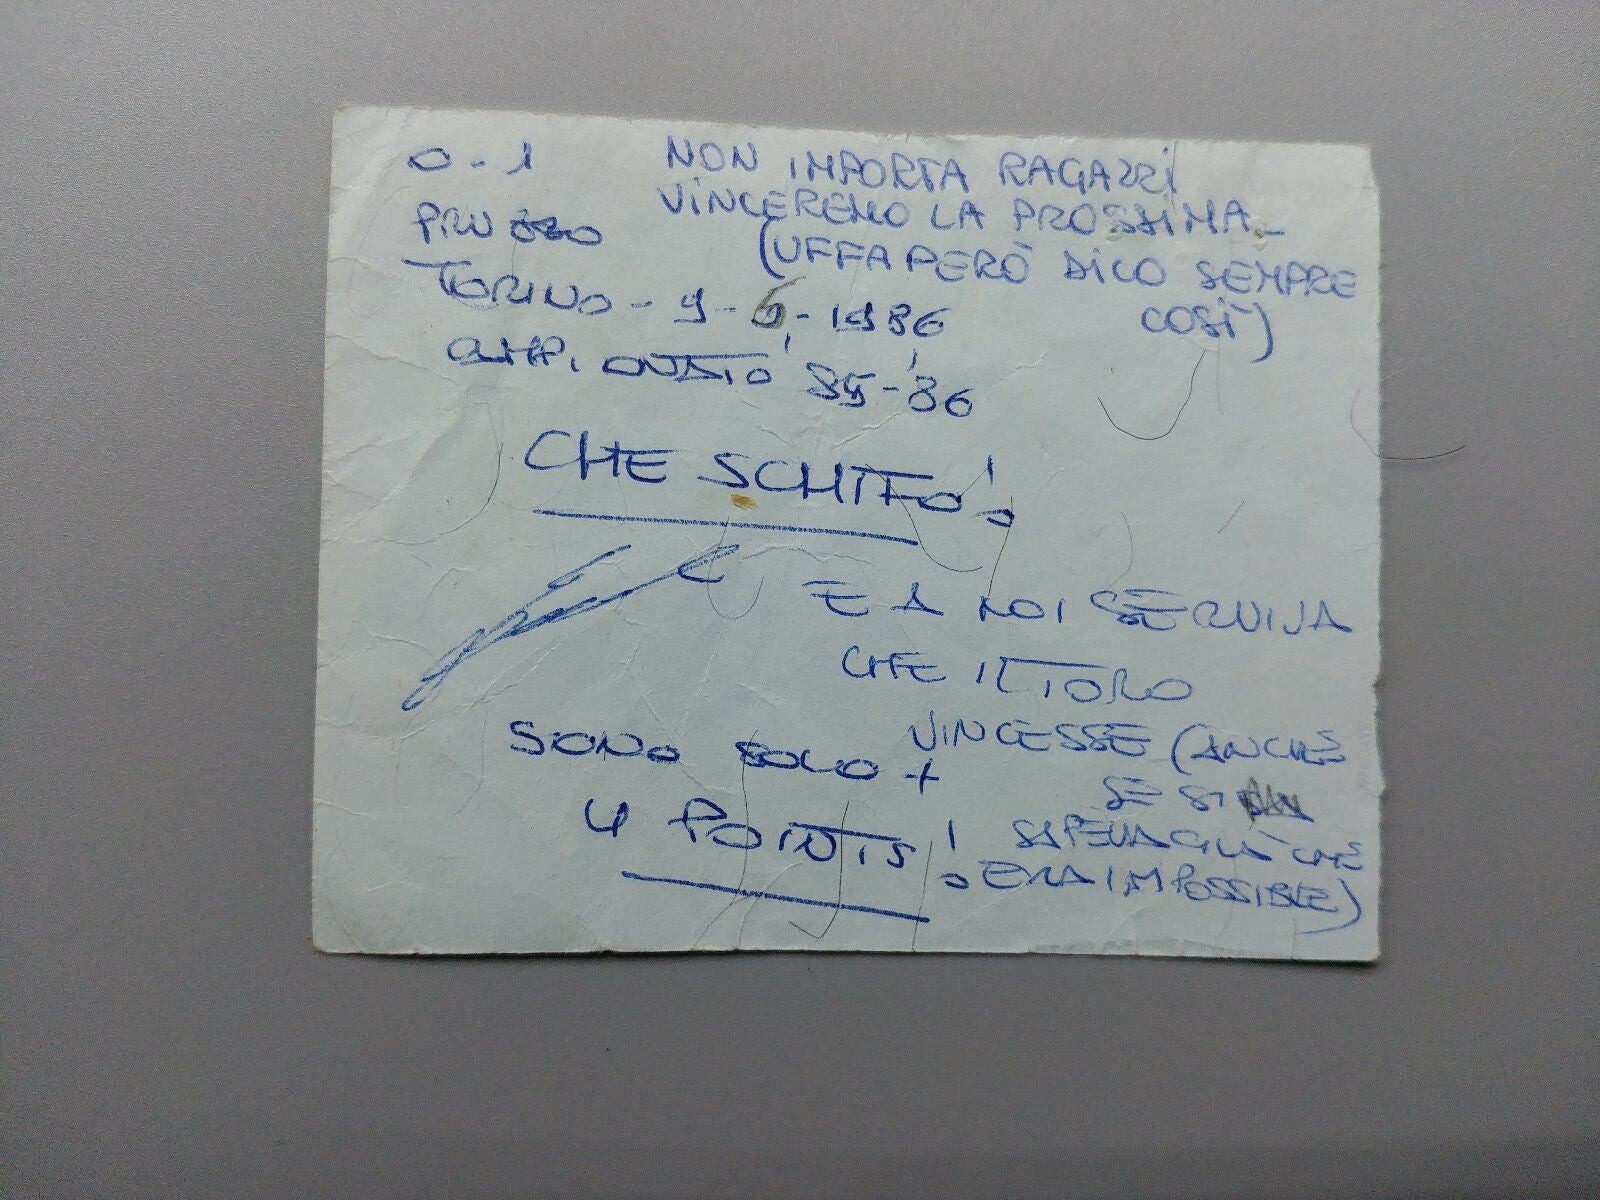 0-1
PRUZZO
TORINO - 9-6-1986
CAMPIONATO '85-'86
NON IMPORTA RAGAZZI
VINCEREMO LA PROSSIMA
(UFFA PERÒ DICO SEMPRE
COSÌ)
CHE SCHIFO!
E A NOI SERVIVA
CHE IL TORO
VINCESSE (ANCHE
SE SI
SAPEVA GIÀ CHE
ERA IMPOSSIBLE)
SONO SOLO +
4 POINTS!